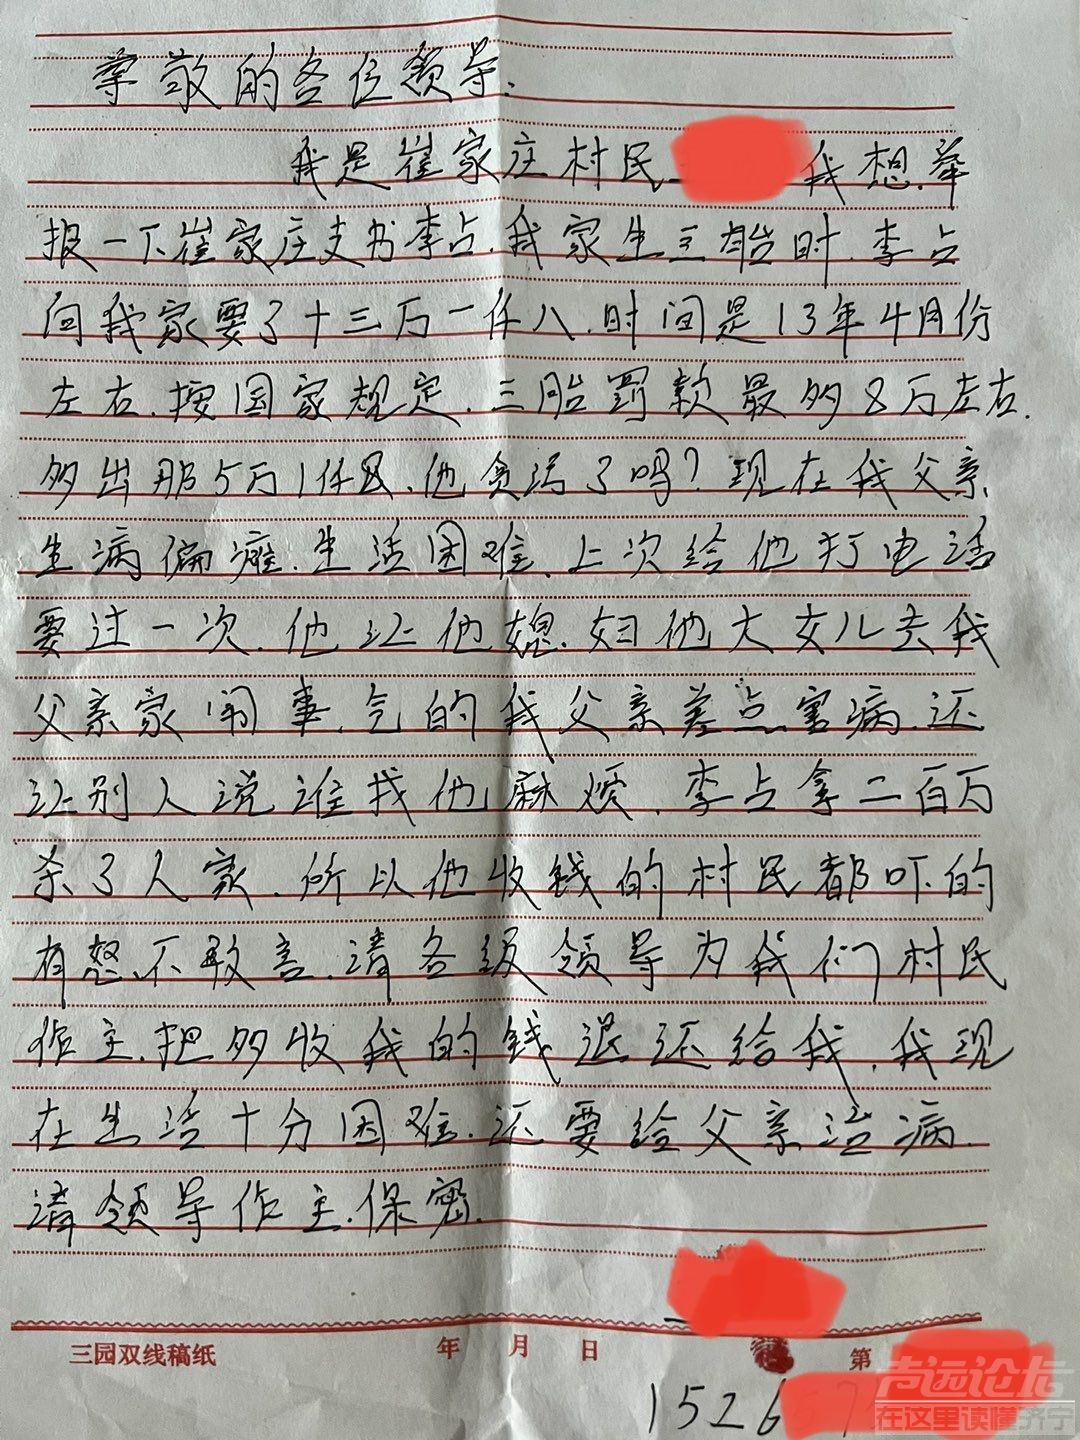 尊敬的各位领导:
我是崔家庄村民 我想举
报一下崔家庄支书李占.我家生三胎时.李占
向我家要了十三万一仟八.时间是13年4月份
左右.按国家规定.三胎罚款最多8万左右.
多出那5万1仟8.他贪污了吗?现在我父亲
生病偏瘫.生活困难.上次给他打电话
要过一次.他让他媳.妇他大女儿去我
父亲家闹事.气的我父亲差点害病.还
让别人说谁找他麻烦.李占拿二百万
杀了人家.所以他收钱的村民都吓的
有怒不敢言.请各级领导为我们村民
作主.把多收我的钱退还给我.我现
在生活十分困难.还要给父亲治病.
请领导作主.保密.
三园双线稿纸 年 月 日 第
1526
声远论坛
在这里读懂济宁